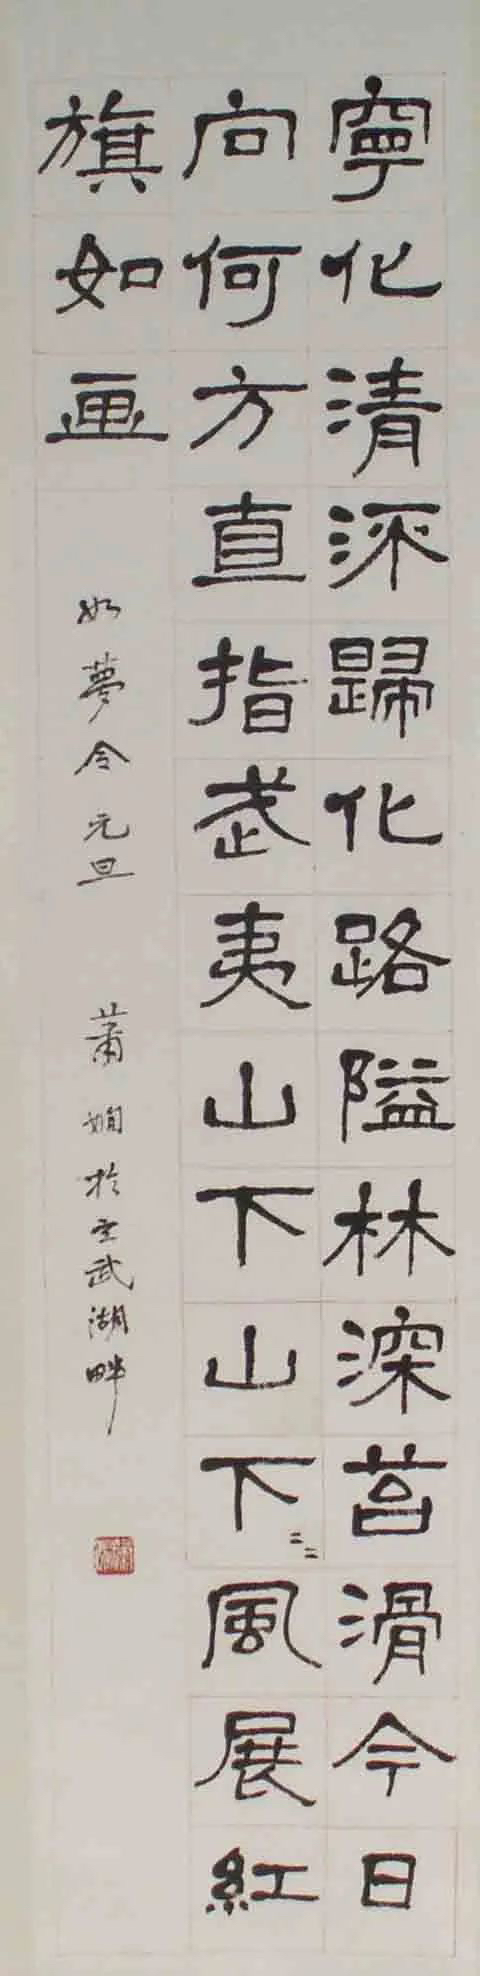 寧化清流歸化路隘林深苔滑今日
向何方直指武夷山下山下〻〻風展紅
旗如画
如夢令元旦 蕭嫻於玄武湖畔